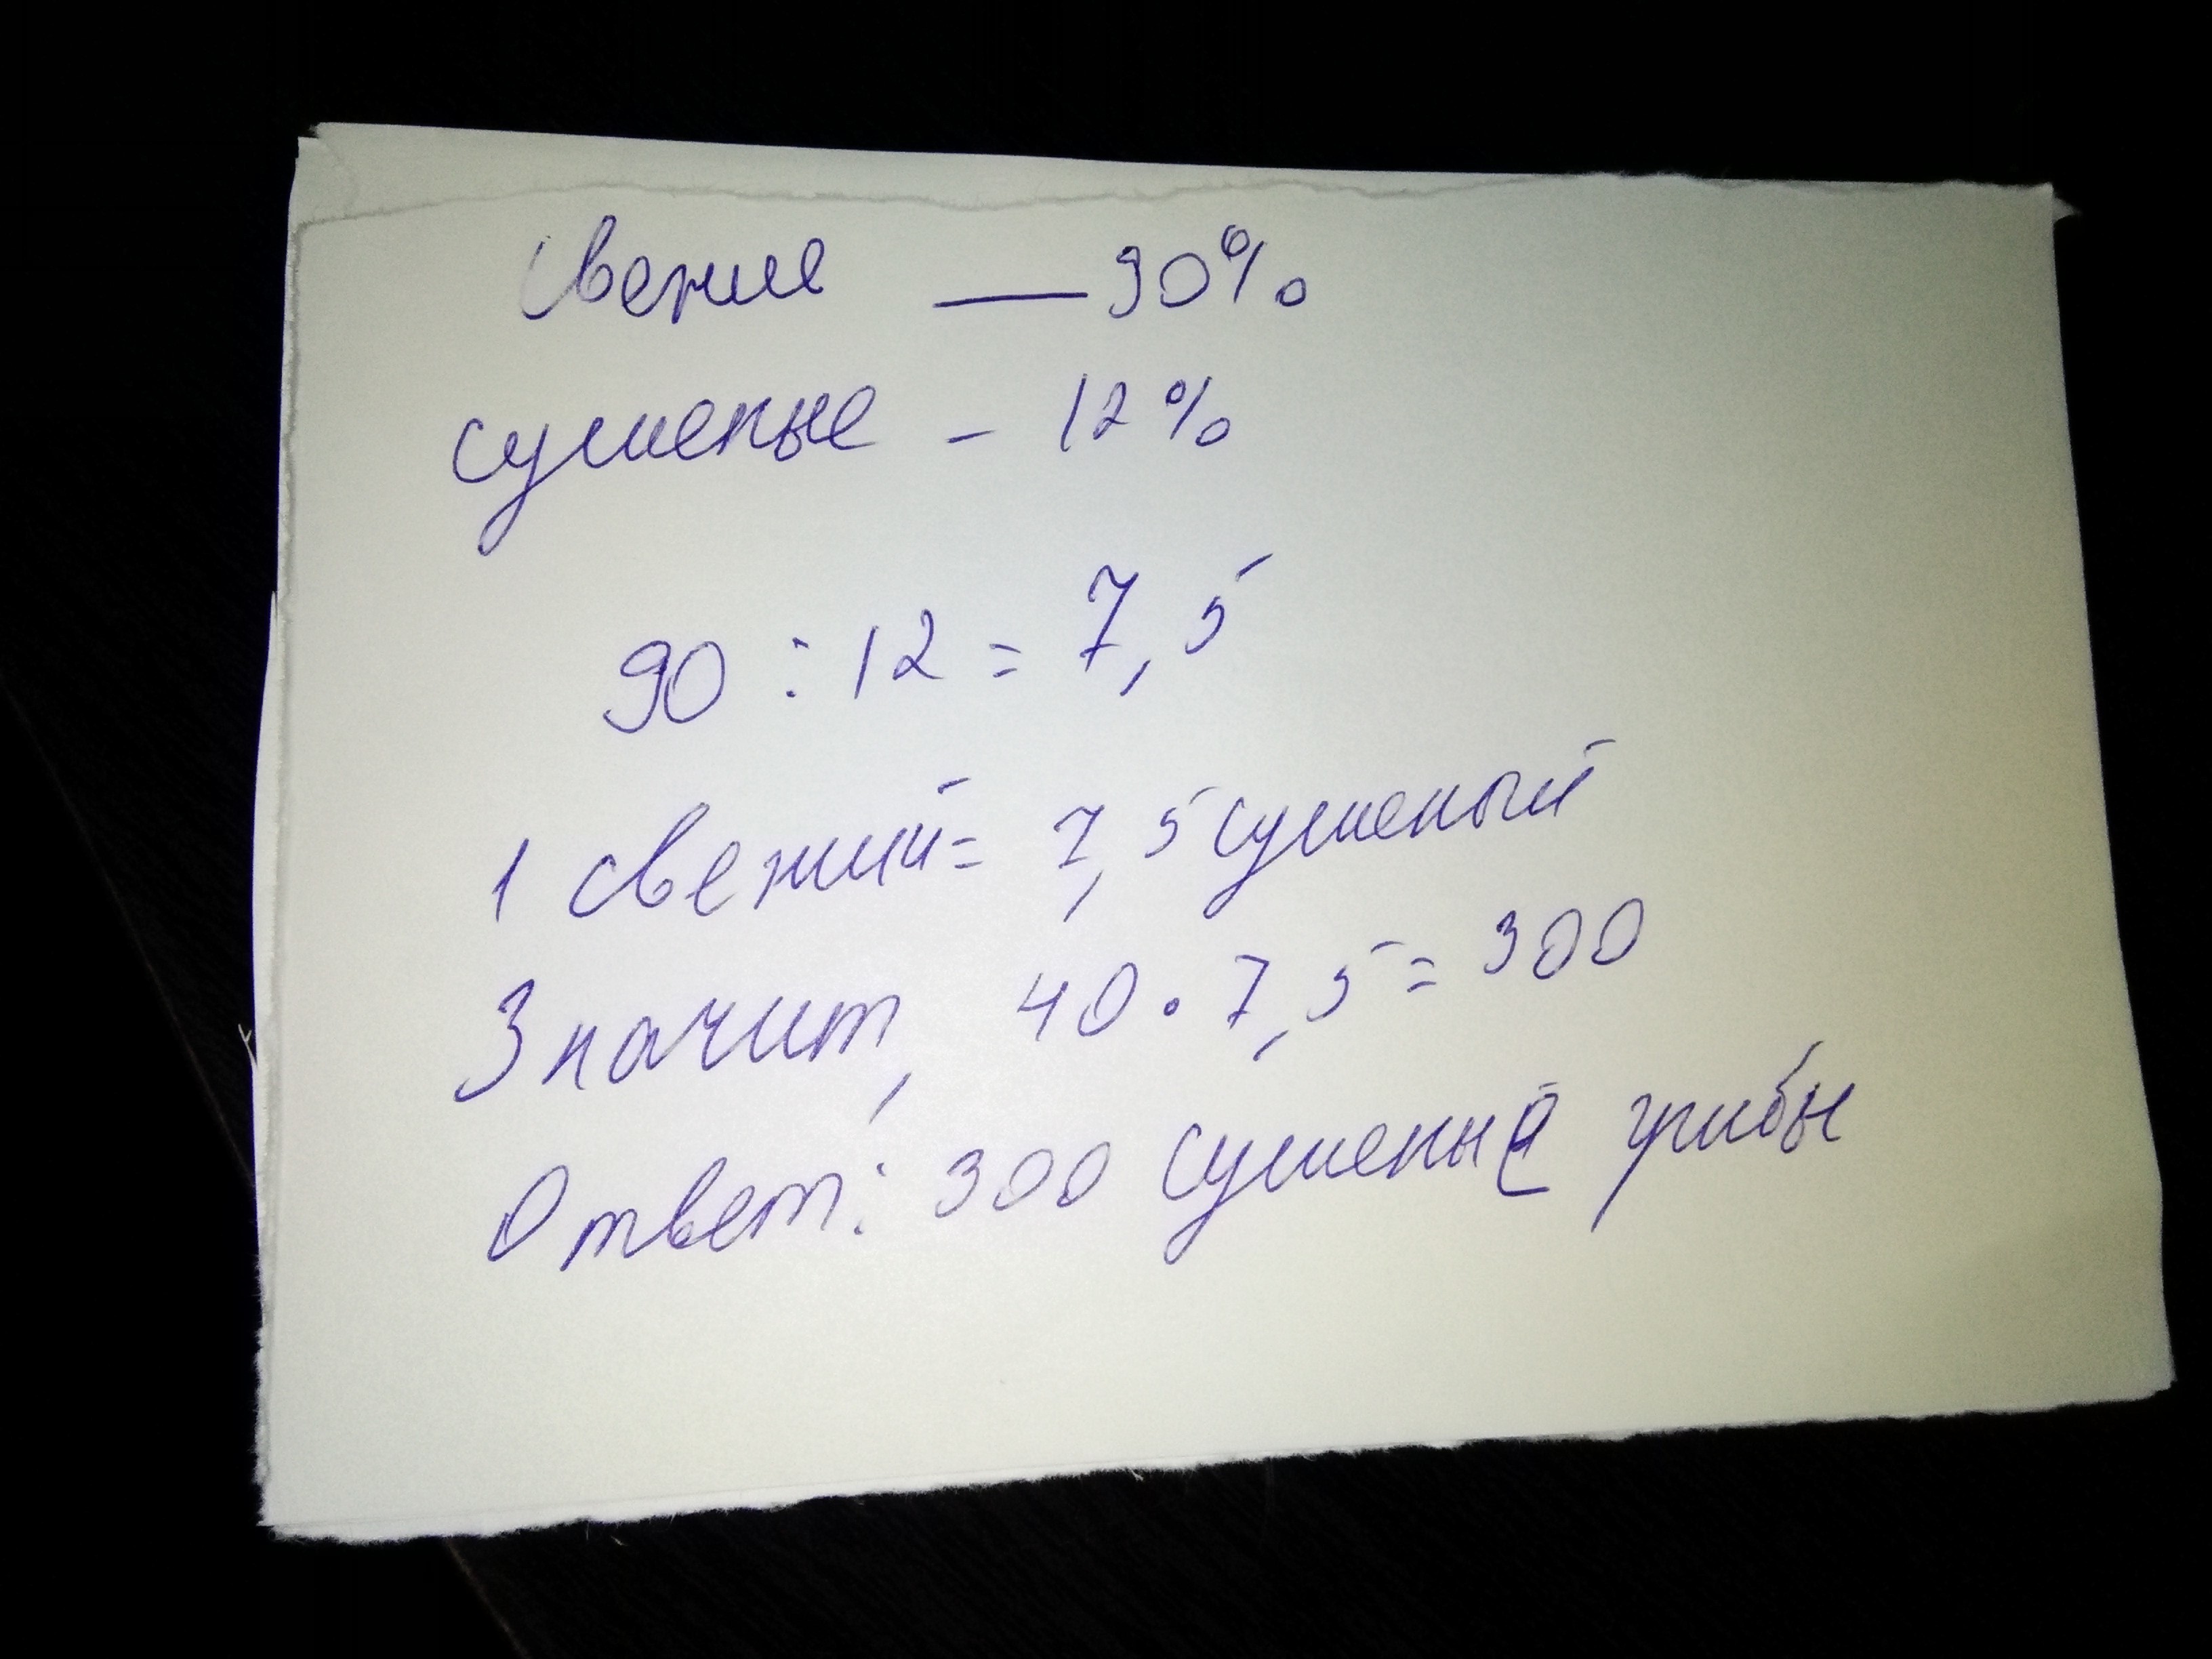 Свежие — 90%
сушеные - 12%
90 : 12 = 7,5
1 свежий = 7,5 сушеный
Значит, 40 · 7,5 = 300
Ответ: 300 сушеные грибы